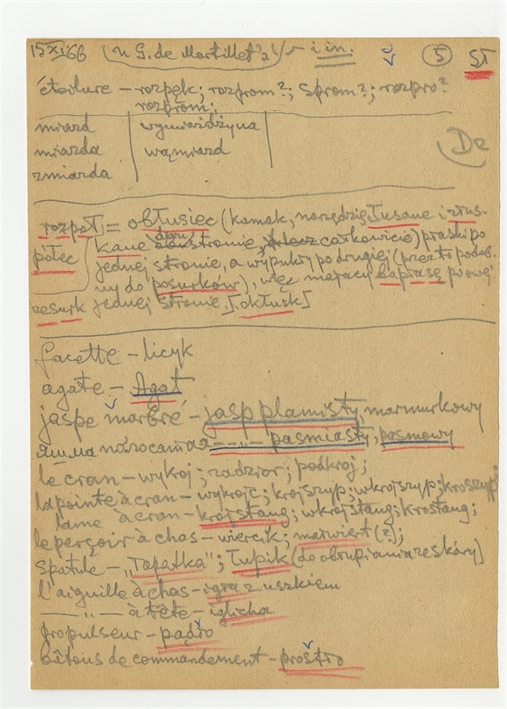 15 XI 66 (u G. de Mortillet'a) i in. 5 ST
étoilure – rozpęk; rozprom?; sprom?; rozpro?
rozprom;
miazd wymiażdżyna
miazda wąmiazd De
zmiazda
rozpoł = obłusiec (kamak, narzędzie łusane i
kane stronie, całkowicie) płaski po
połec jednej stronie, a wypukły po drugiej (przeto podob-
ny do posurków), więc mający kaprasę po owej
resurk jednej stronie. [okłusk]
facette – licyk
agate – Agat
jaspe marbré – jasp plamisty, marmurkowy
яшма полосатая – " – pasmiasty, pasmowy
le cran – wykój; zadzior; podkroj;
la pointe à cran – wykrojc; krojszyp; wkrojszyp; kroszyp;
lame à cran – krojstang; wkrojstang; krostang;
le perçoir à chas – wiercik; marwiert (?);
spatule – "Topatka"; Łupik (do obłupiania ze skóry)
l'aiguille à chas – igra z uszkiem
– " – à tête – iglicha
propulseur – pądło
bâtons de commandement – prostro